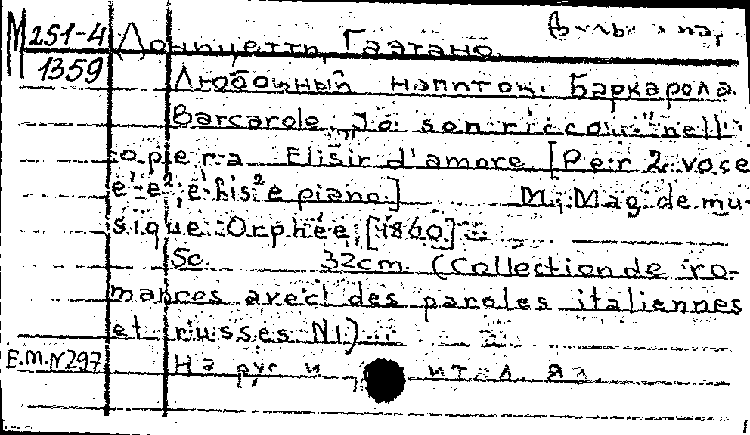 М251-4 Доницетти, Гаэтано.
1359 Любовный напиток. Баркарола.
Barcarole „Jo son riccou" nell'
opera Elisir d'amore [Per 2 voce
e¹-e²; e¹-his² e piano]. М., Mag. de mu-
sique Orphée, [1860].
5c. 32cm (Collection de ro-
mances avec des paroles italiennes
et russes N1)
Е.М.N297 На рус и итал. яз.